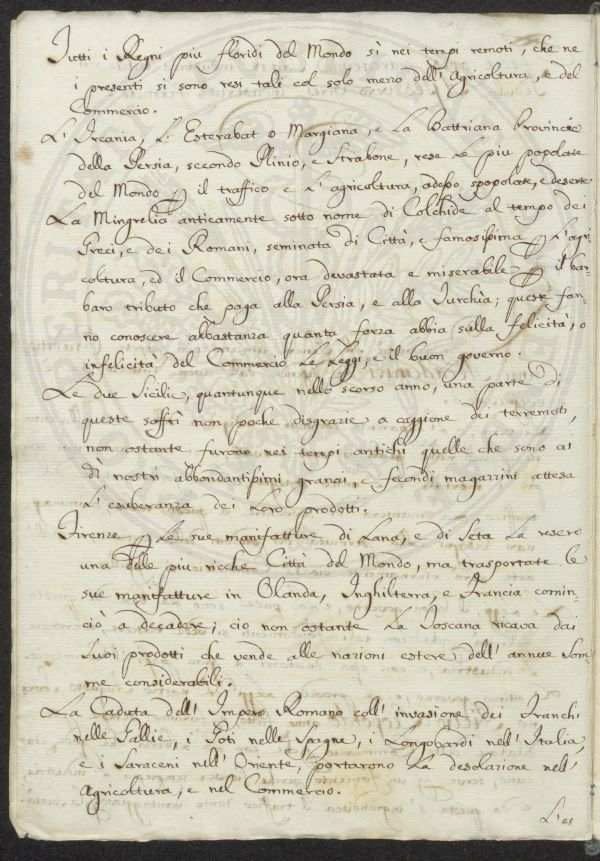 Tutti i Regni più floridi del Mondo sì nei tempi remoti, che ne
i presenti si sono resi tali col solo mezzo dell'Agricoltura, e del
Commercio.
L'Ircania, L'Esterabat o Margiana, e La Battriana Provincie
della Persia, secondo Plinio, e Strabone, rese Le più popolate
del Mondo il traffico e L'agricoltura, adesso spopolate, e deserte
La Mingrelia anticamente sotto nome di Colchide al tempo dei
Greci, e dei Romani, seminata di Città, e famosissima L'agri
coltura, ed il Commercio, ora devastata e miserabile il bar-
baro tributo che paga alla Persia, e alla Turchia; queste fan-
no conoscere abbastanza quanta forza abbia sulla felicità, o
infelicità del Commercio Le Leggi, e il buon governo.
Le due Sicilie, quantunque nello scorso anno, una parte di
queste soffrì non poche disgrazie a caggione dei terremoti,
non ostante furono nei tempi antichi quelle che sono ai
dì nostri abbondantissimi granai, e fecondi magazzini attesa
L'esuberanza dei Loro prodotti.
Firenze Le sue manifatture di Lana, e di Seta La resero
una delle più ricche Città del Mondo, ma trasportate le
sue manifatture in Olanda, Inghilterra, e Francia comin-
ciò a decadere; ciò non ostante La Toscana ricava dai
suoi prodotti che vende alle nazioni estere dell'annue som-
me considerabili.
La Caduta dell'Impero Romano coll'invasione dei Franchi
nelle Gallie, i Goti nelle Spagne, i Longobardi nell'Italia,
e i Saraceni nell'Oriente, portarono La desolazione nell'
Agricoltura, e nel Commercio.
L'es